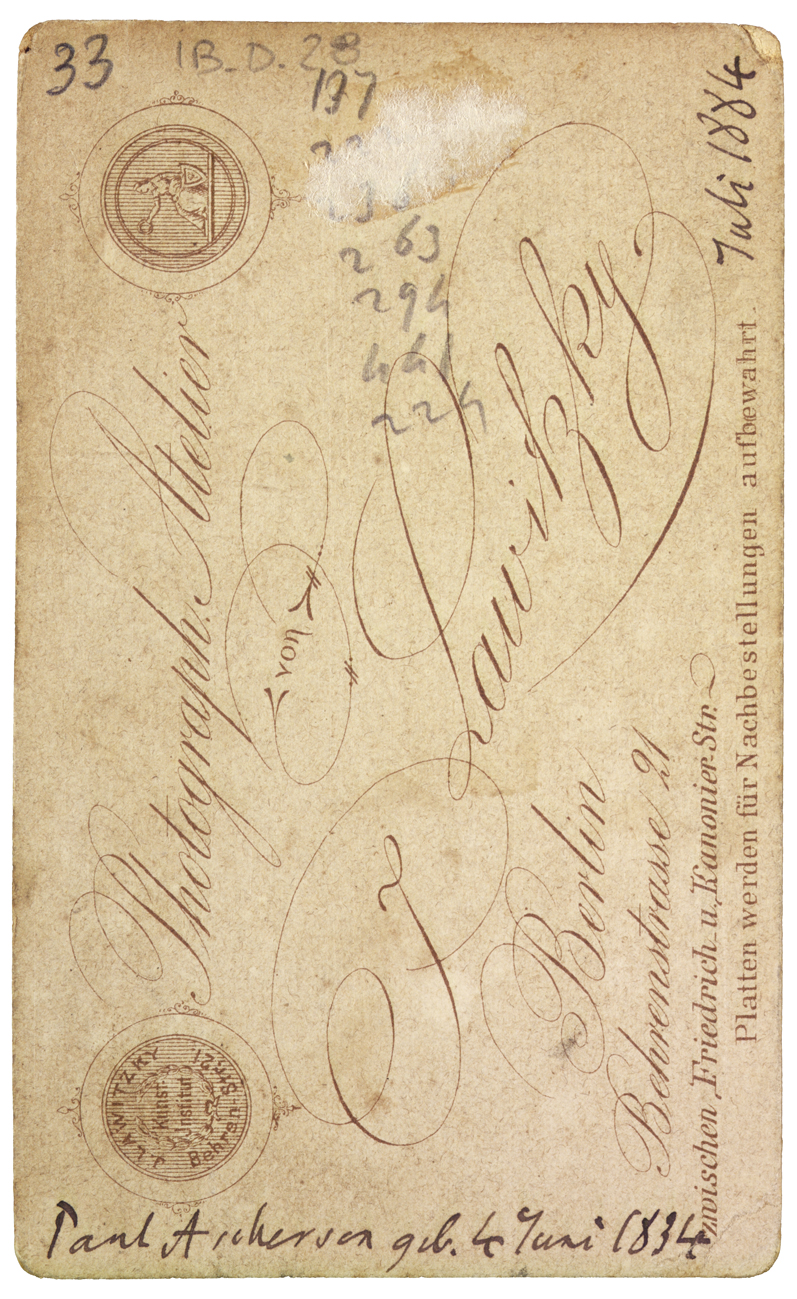 33
1B.D. 28
197
263
294
441
224
Juli 1884
J. LAWITZKY
Kunst
Institut
Behren Str. 21
Photograph. Atelier
von
J Lawitzky.
Berlin
Behrenstrasse 21
zwischen Friedrich u. Kanonier-Str.
Platten werden für Nachbestellungen aufbewahrt.
Paul Ascherson geb. 4 Juni 1834